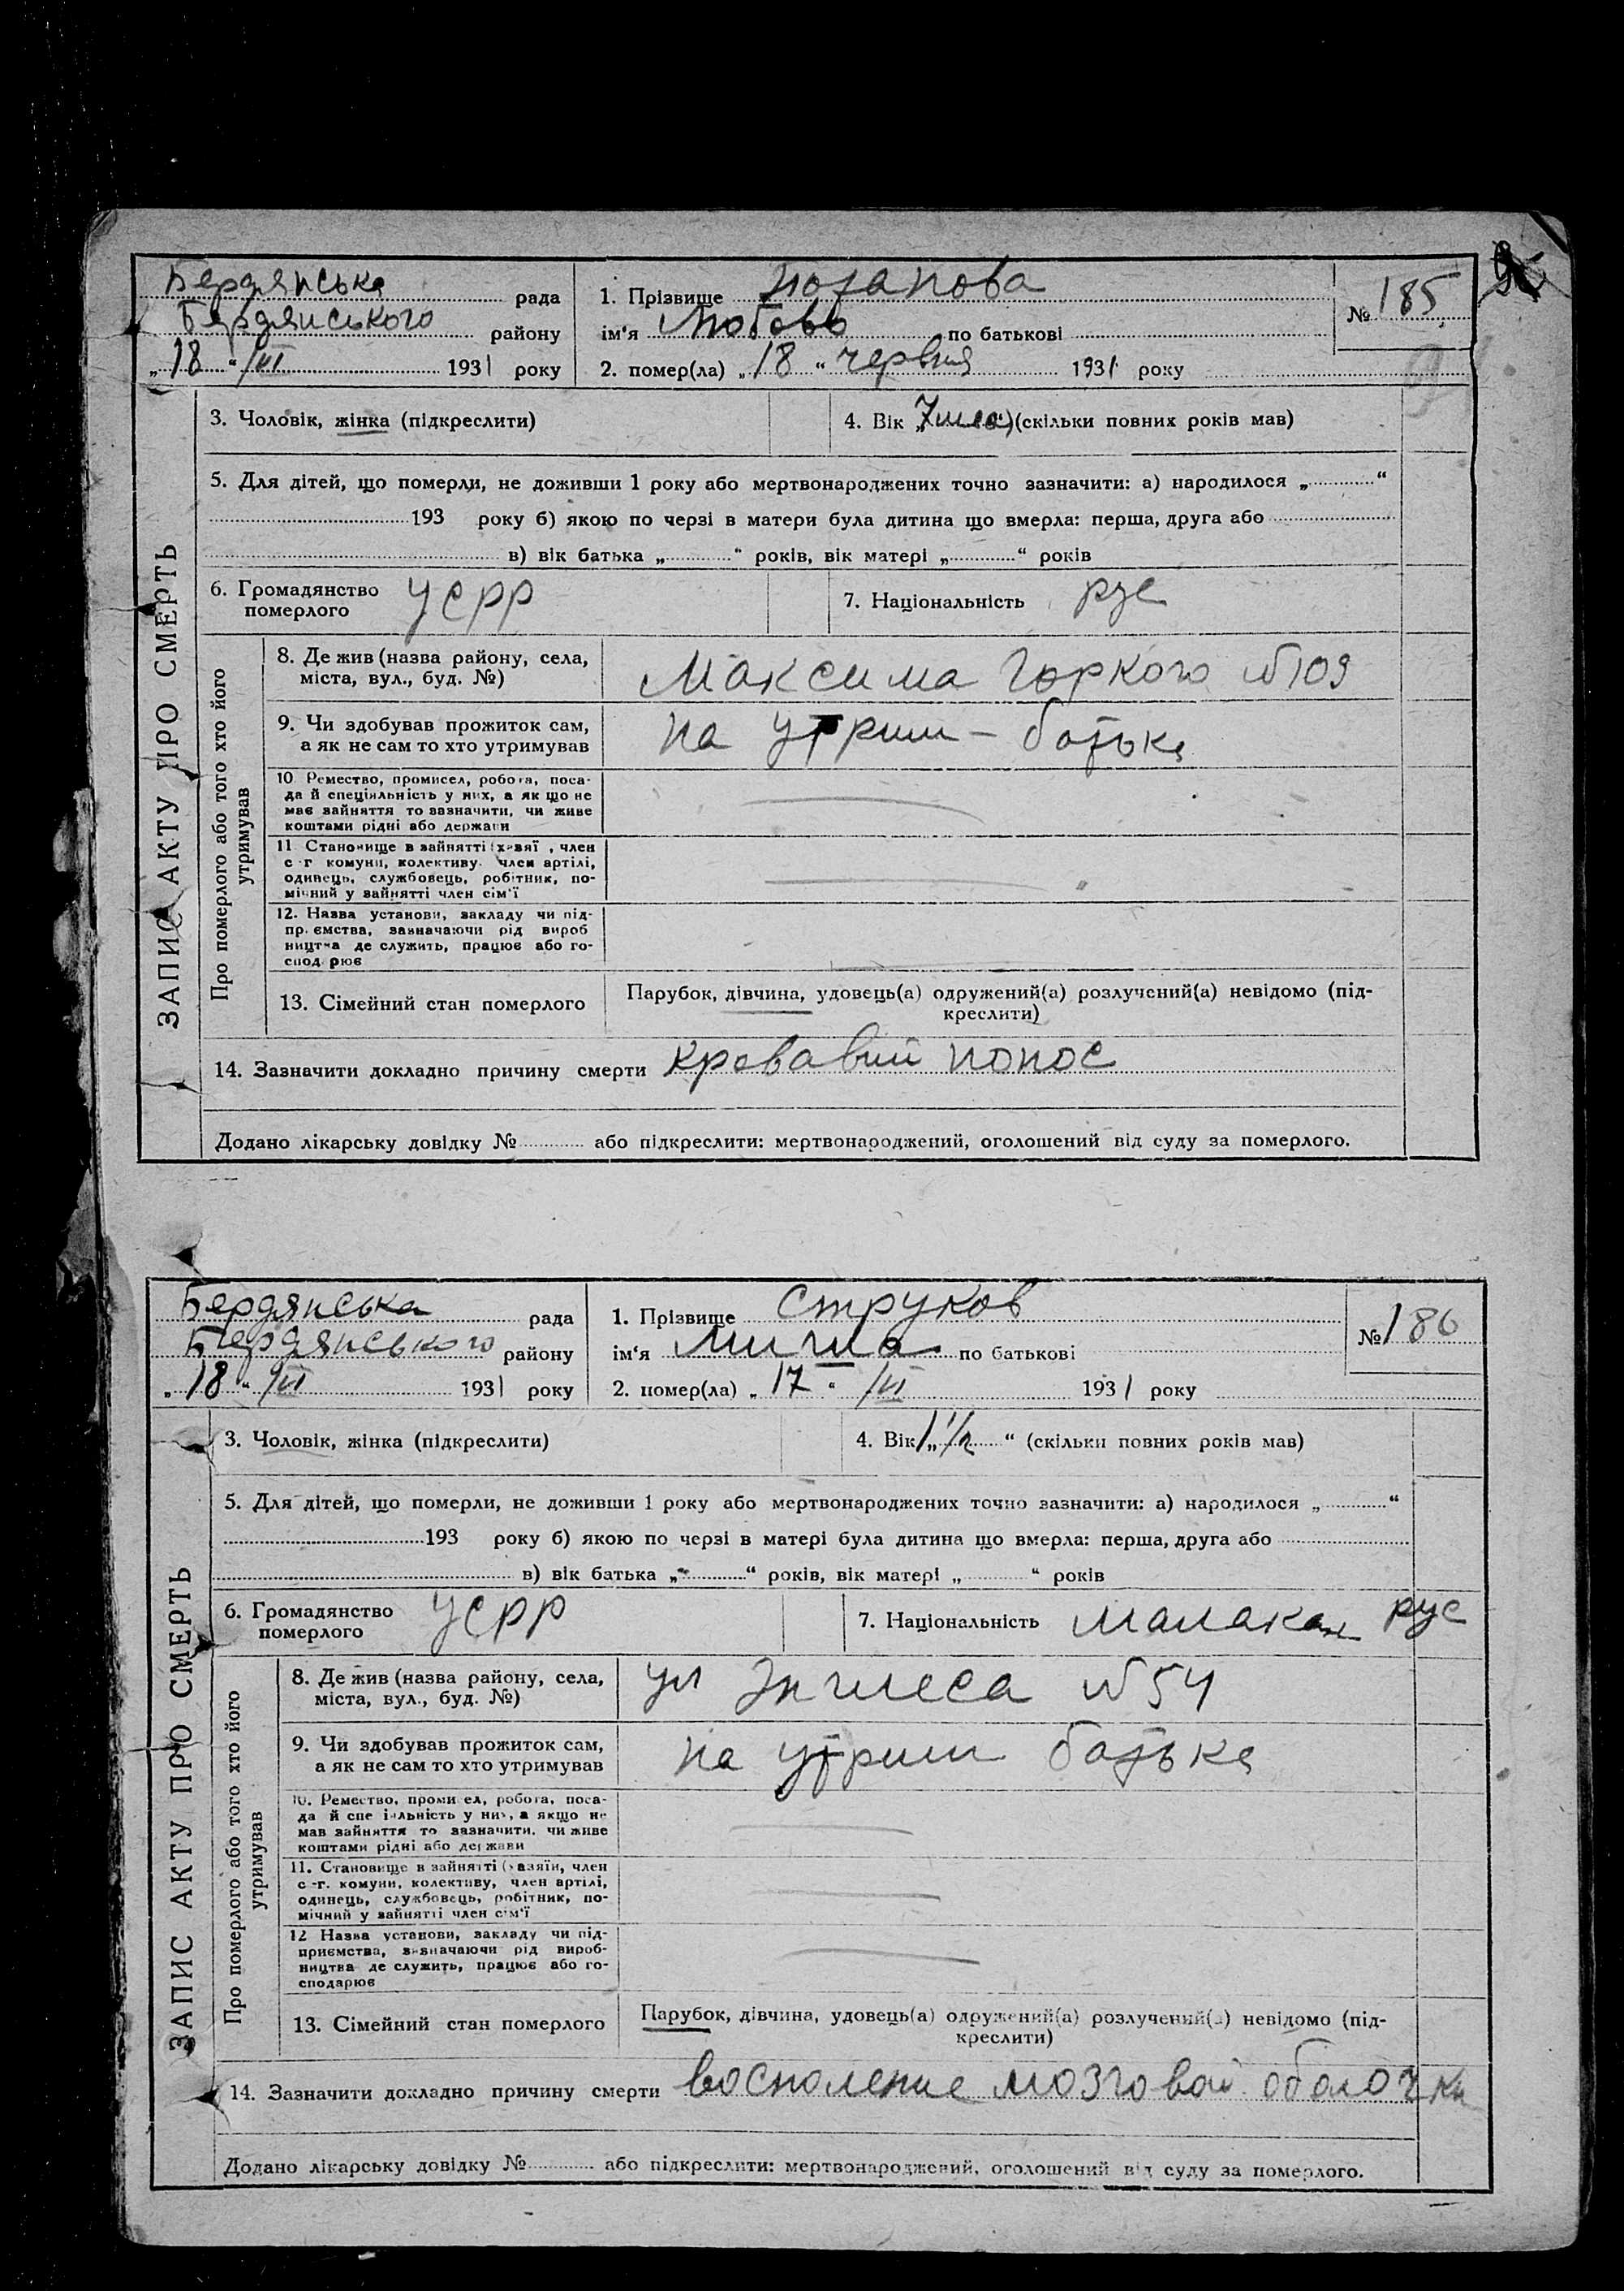 Бердянська рада
Бердянського району
„18“ /VI 1931 року
1. Прізвище Потапова
ім‘я Любовь по батькові
2. помер(ла) „18“ червня 1931 року
№ 185
3. Чоловік, жінка (підкреслити)
4. Вік „7 (скільки повних років мав)
5. Для дітей, що померли, не доживши 1 року або мертвонароджених точно зазначити: а) народилося „ “
193 року б) якою по черзі в матери була дитина що вмерла: перша, друга або
в) вік батька „ “ років, вік матері „ “ років
6. Громадянство померлого УСРР
7. Національність рус
ЗАПИС АКТУ ПРО СМЕРТЬ
Про померлого або того хто його утримував
8. Де жив (назва району, села,
міста, вул., буд. №)
Максима Горкого №109
9. Чи здобував прожиток сам,
а як не сам то хто утримував
на утрим – батька
10 Ремество, промисел, робота, поса-
да й спеціяльність у них, а як що не
має зайняття то зазначити, чи живе
коштами рідні або держави
11 Становище в зайнятті (хазяї , член
с-г комуни, колективу. член артілі,
одинець, службовець, робітник, по-
мічний у зайнятті член сім‘ї
12. Назва установи, закладу чи під-
пр. ємства, зазначаючи рід вироб
ництва де служить, працює або го-
спод рює
13. Сімейний стан померлого
Парубок, дівчина, удовець(а) одружений(а) розлучений(а) невідомо (під-
креслити)
14. Зазначити докладно причину смерти кровавий понос
Додано лікарську довідку № або підкреслити: мертвонароджений, оголошений від суду за померлого.
Бердянська рада
Бердянського району
„18“ /VI 1931 року
1. Прізвище Струков
ім‘я Миша по батькові
2. помер(ла) „17“ /VI 1931 року
№ 186
3. Чоловік, жінка (підкреслити)
4. Вік 1 „1/2“ (скільки повних років мав)
5. Для дітей, що померли, не доживши 1 року або мертвонароджених точно зазначити: а) народилося „ “
193 року б) якою по черзі в матері була дитина що вмерла: перша, друга або
в) вік батька „ “ років, вік матері „ “ років
6. Громадянство померлого УСРР
7. Національність малакан рус
ЗАПИС АКТУ ПРО СМЕРТЬ
Про померлого або того хто його утримував
8. Де жив (назва району, села,
міста, вул., буд. №)
ул Энгилеса №54
9. Чи здобував прожиток сам,
а як не сам то хто утримував
на утрим батька
10. Ремество, промисел, робота, поса-
да й спеціяльність у них, а якщо не
мав зайняття то зазначити. чи живе
коштами рідні або держави
11. Становище в зайнятті (хазяїн, член
с-г. комуни, колективу, член артілі,
одинець, службовець, робітник, по-
мічний у зайнятті член сім‘ї
12 Назва установи, закладу чи під-
приємства, зазначаючи рід вироб-
ництва де служить, працює або го-
сподарює
13. Сімейний стан померлого
Парубок, дівчина, удовець(а) одружений(а) розлучений(а) невідомо (під-
креслити)
14. Зазначити докладно причину смерти восполение мозговой оболочки
Додано лікарську довідку № або підкреслити: мертвонароджений, оголошений від суду за померлого.